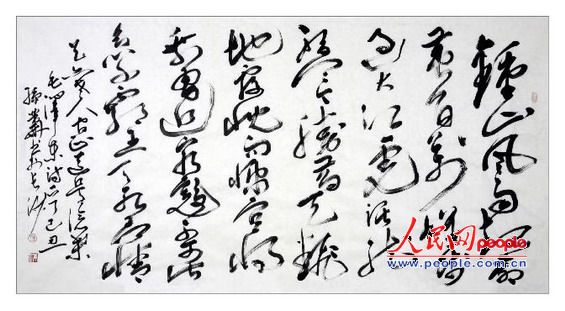 鍾山风雨起苍
黄百万雄师
过大江虎踞龙
盘今胜昔天翻
地覆慨而慷宜将
剩勇追穷寇不可沽
名学霸王天若有情
天亦老人间正道是沧桑
毛泽东诗 己丑
书于长沙
人民网
www.people.com.cn